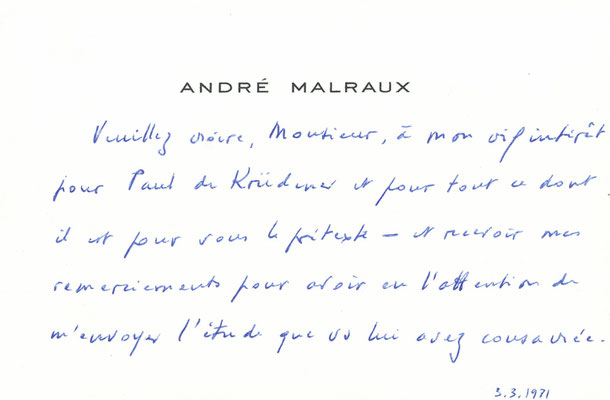 ANDRÉ MALRAUX
Veuillez croire, Monsieur, à mon vif intérêt
pour Paul de Krüdener et pour tout ce dont
il est pour vous le prétexte — et recevoir mes
remerciements pour avoir eu l'attention de
m'envoyer l'étude que vs lui avez consacrée.
3.3.1971